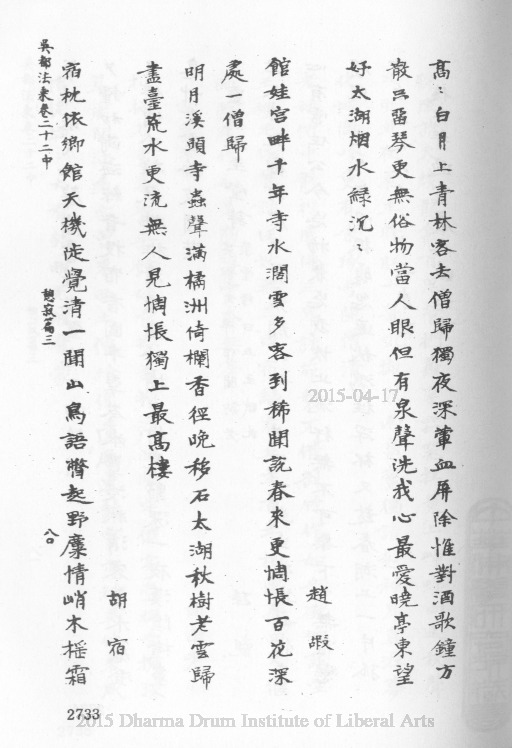 高〻白月上青林客去僧歸獨夜深葷血屏除惟對酒歌鐘方
散只留琴更無俗物當人眼但有泉聲洗我心最愛曉亭東望
好太湖烟水綠沉〻
趙嘏
館娃宮畔千年寺水濶雲多客到稀聞說春來更惆悵百花深
處一僧歸
明月溪頭寺蟲聲滿橘洲倚欄香徑晚移石太湖秋樹老雲歸
盡臺荒水更流無人見惆悵獨上最高樓
胡宿
宿枕依鄉館天機陡覺清一聞山鳥語瞥起野麋情峭木搖霜
吳都法乘卷二十二中
憩寂篇三
八〇
2733
2015-04-17
2015 Dharma Drum Institute of Liberal Arts